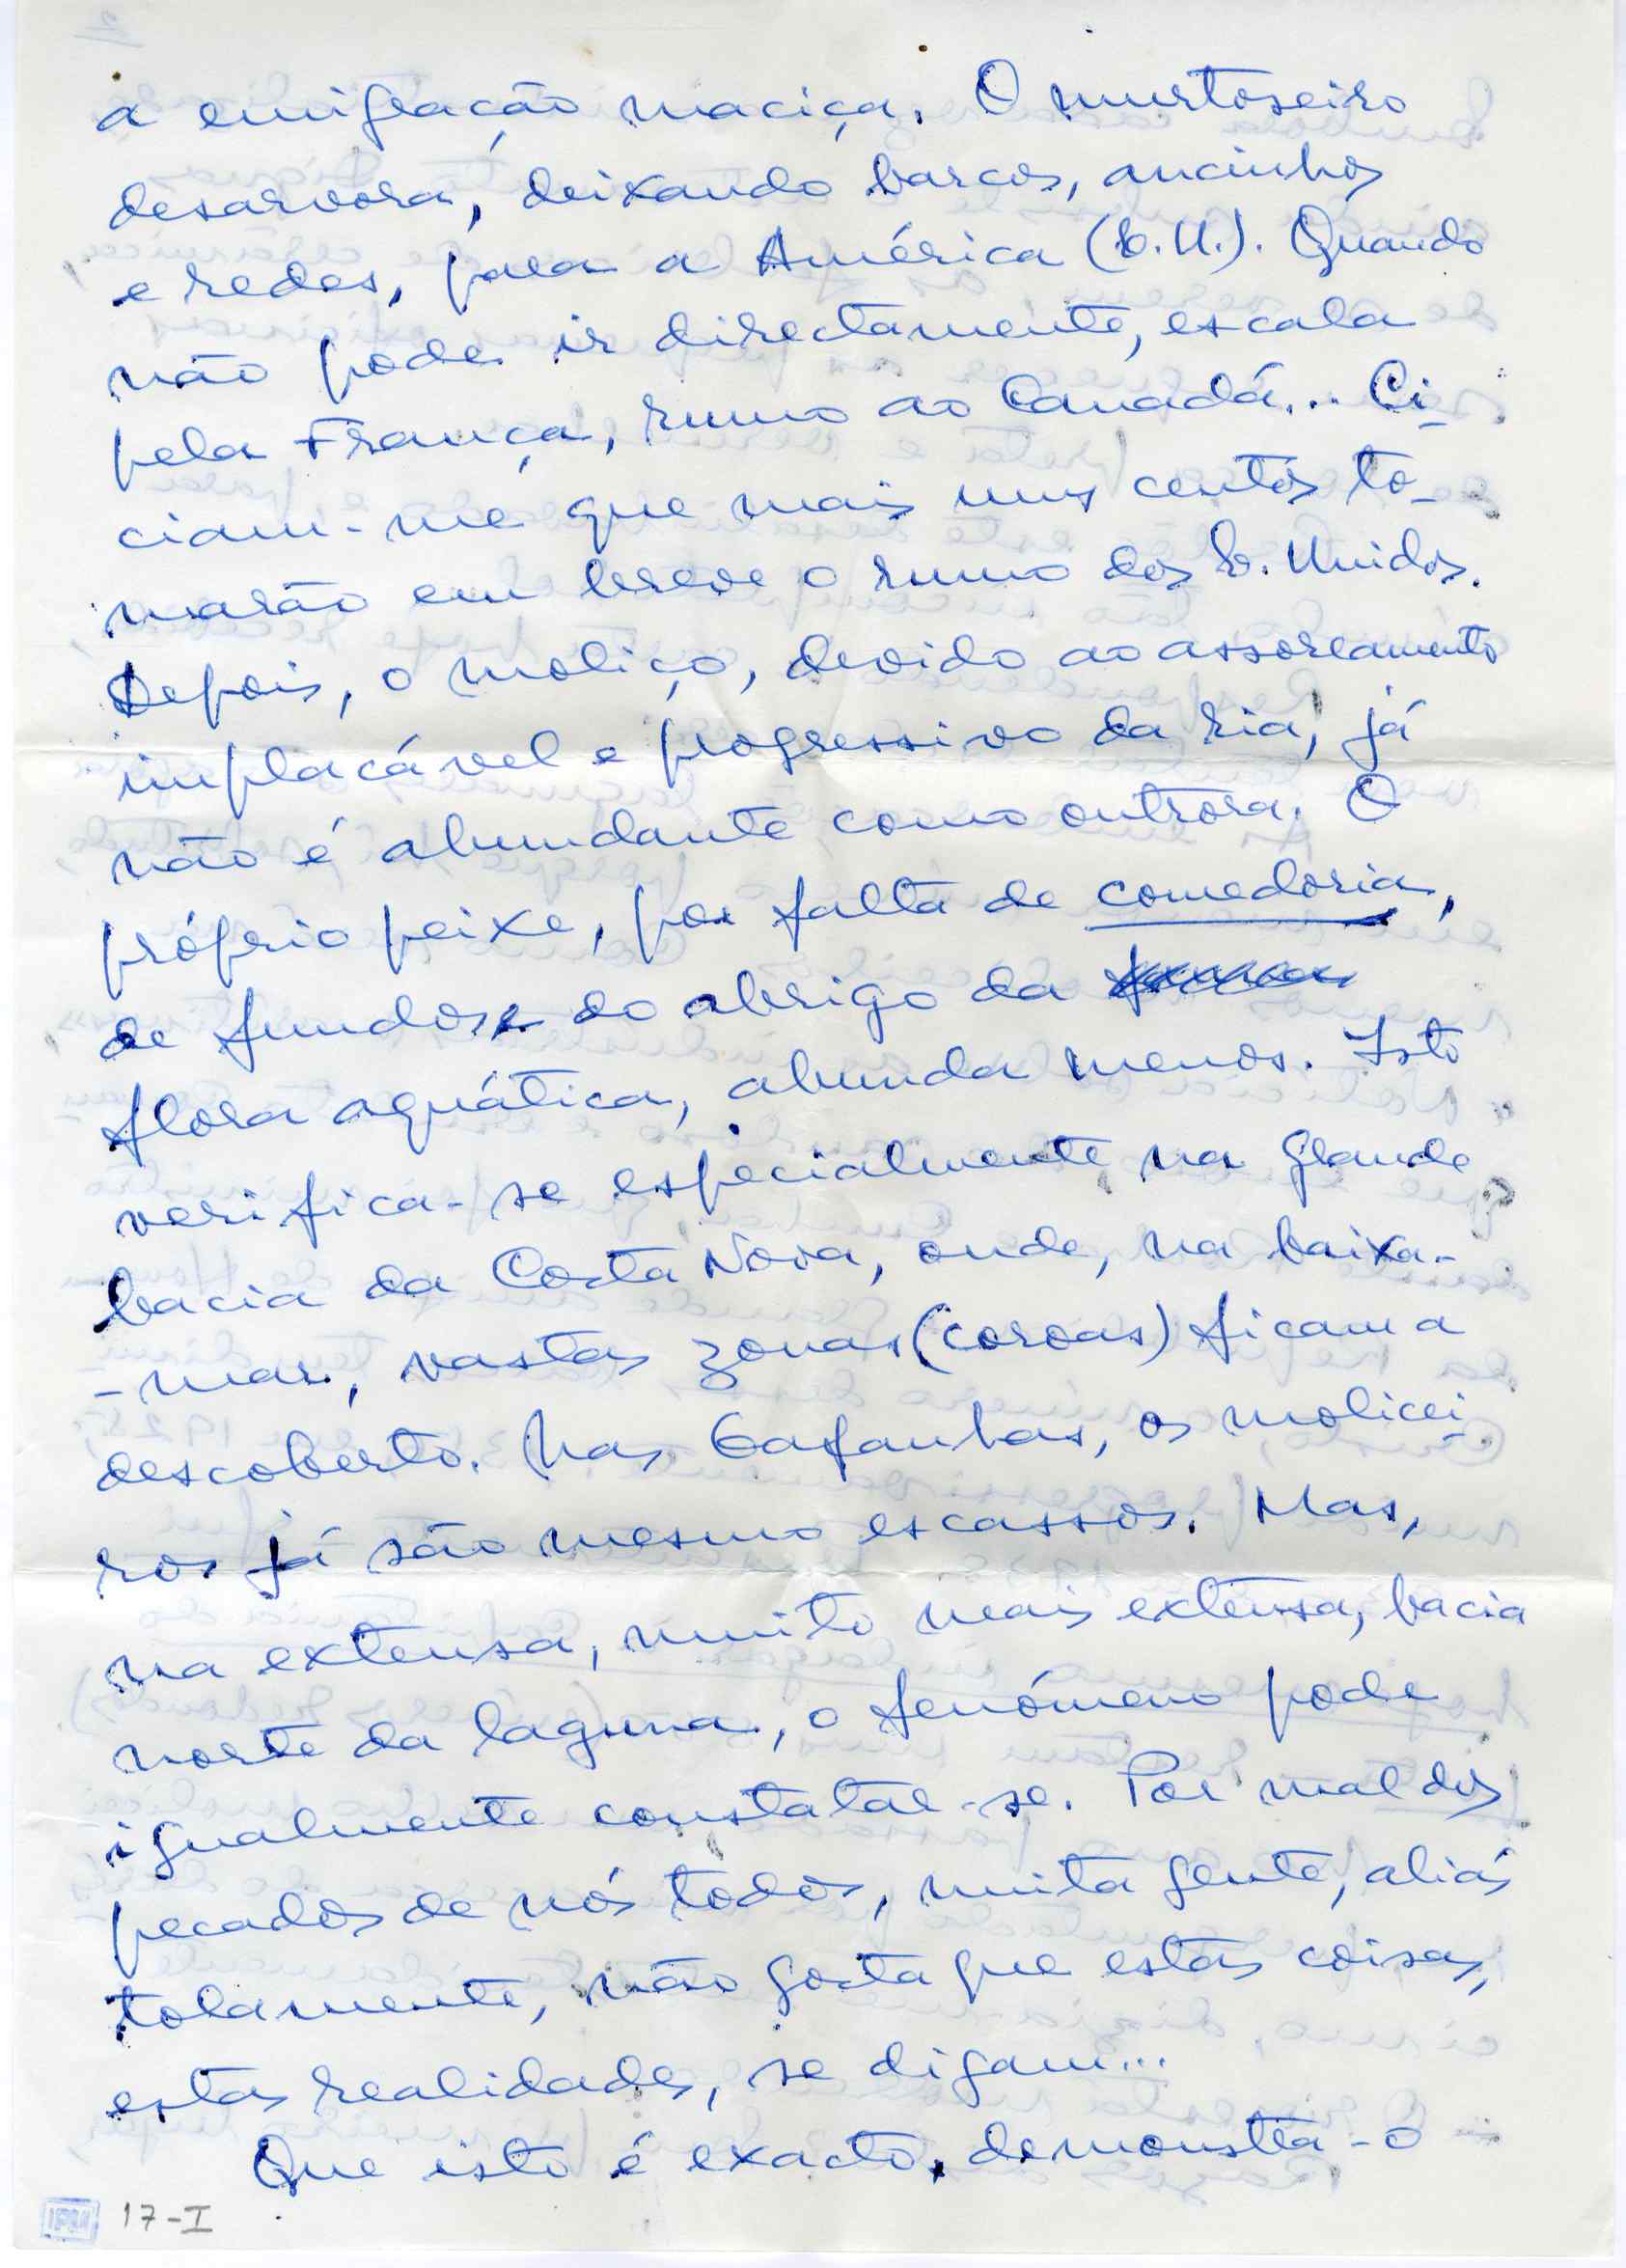 a emigração maciça. O murtoseiro
desarvora, deixando barcos, ancinhos
e redes, para a América (E.U.). Quando
não pode ir directamente, escala
pela França, rumo ao Canadá... Ci-
ciam-me que mais uns centos to-
marão em breve o rumo dos E. Unidos.
Depois, o moliço, devido ao assoreamento
implacável e progressivo da ria, já
não é abundante como outrora. O
próprio peixe, por falta de comedoria,
de fundos e do abrigo da
flora aquática, abunda menos. Isto
verifica-se especialmente na grande
bacia da Costa Nova, onde, na baixa-
-mar, vastas zonas (coroas) ficam a
descoberto. Nas Gafanhas, os molicei-
ros já são mesmo escassos. Mas,
na extensa, muito mais extensa, bacia
norte da laguna, o fenómeno pode
igualmente constatar-se. Por mal dos
pecados de nós todos, muita gente, aliás
tolamente, não gosta que estas coisas,
estas realidades, se digam...
Que isto é exacto, demonstra-o
17-I